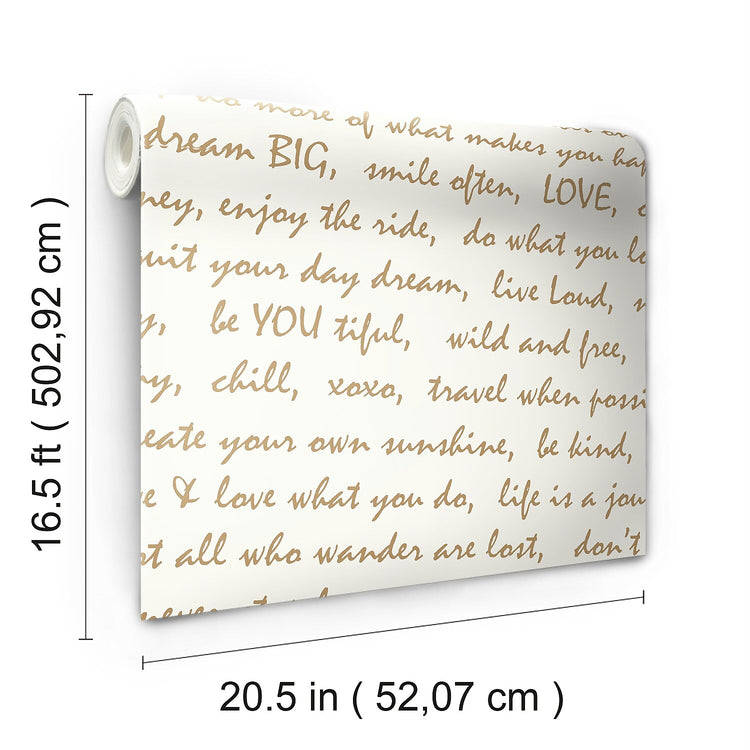 do more of what makes you hap
dream BIG, smile often, LOVE,
ney, enjoy the ride, do what you lo
quit your day dream, live Loud,
y, be YOU tiful, wild and free,
y, chill, xoxo, travel when possi
eate your own sunshine, be kind,
e & love what you do, life is a jou
ot all who wander are lost, don't
never
16.5 ft ( 502,92 cm )
20.5 in ( 52,07 cm )